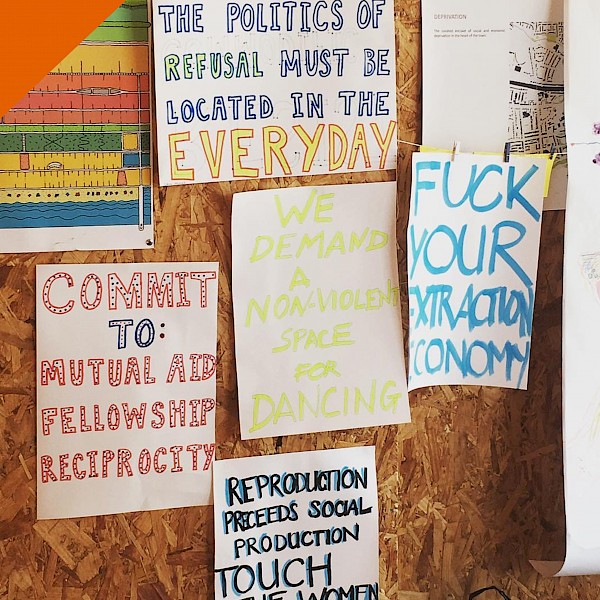 THE POLITICS OF
REFUSAL MUST BE
LOCATED IN THE
EVERYDAY
DEPRIVATION
WE
DEMAND
A
NON-VIOLENT
SPACE
FOR
DANCING
FUCK
YOUR
EXTRACTION
ECONOMY
COMMIT
TO:
MUTUAL AID
FELLOWSHIP
RECIPROCITY
REPRODUCTION
PRECEEDS SOCIAL
PRODUCTION
TOUCH
THE WOMEN